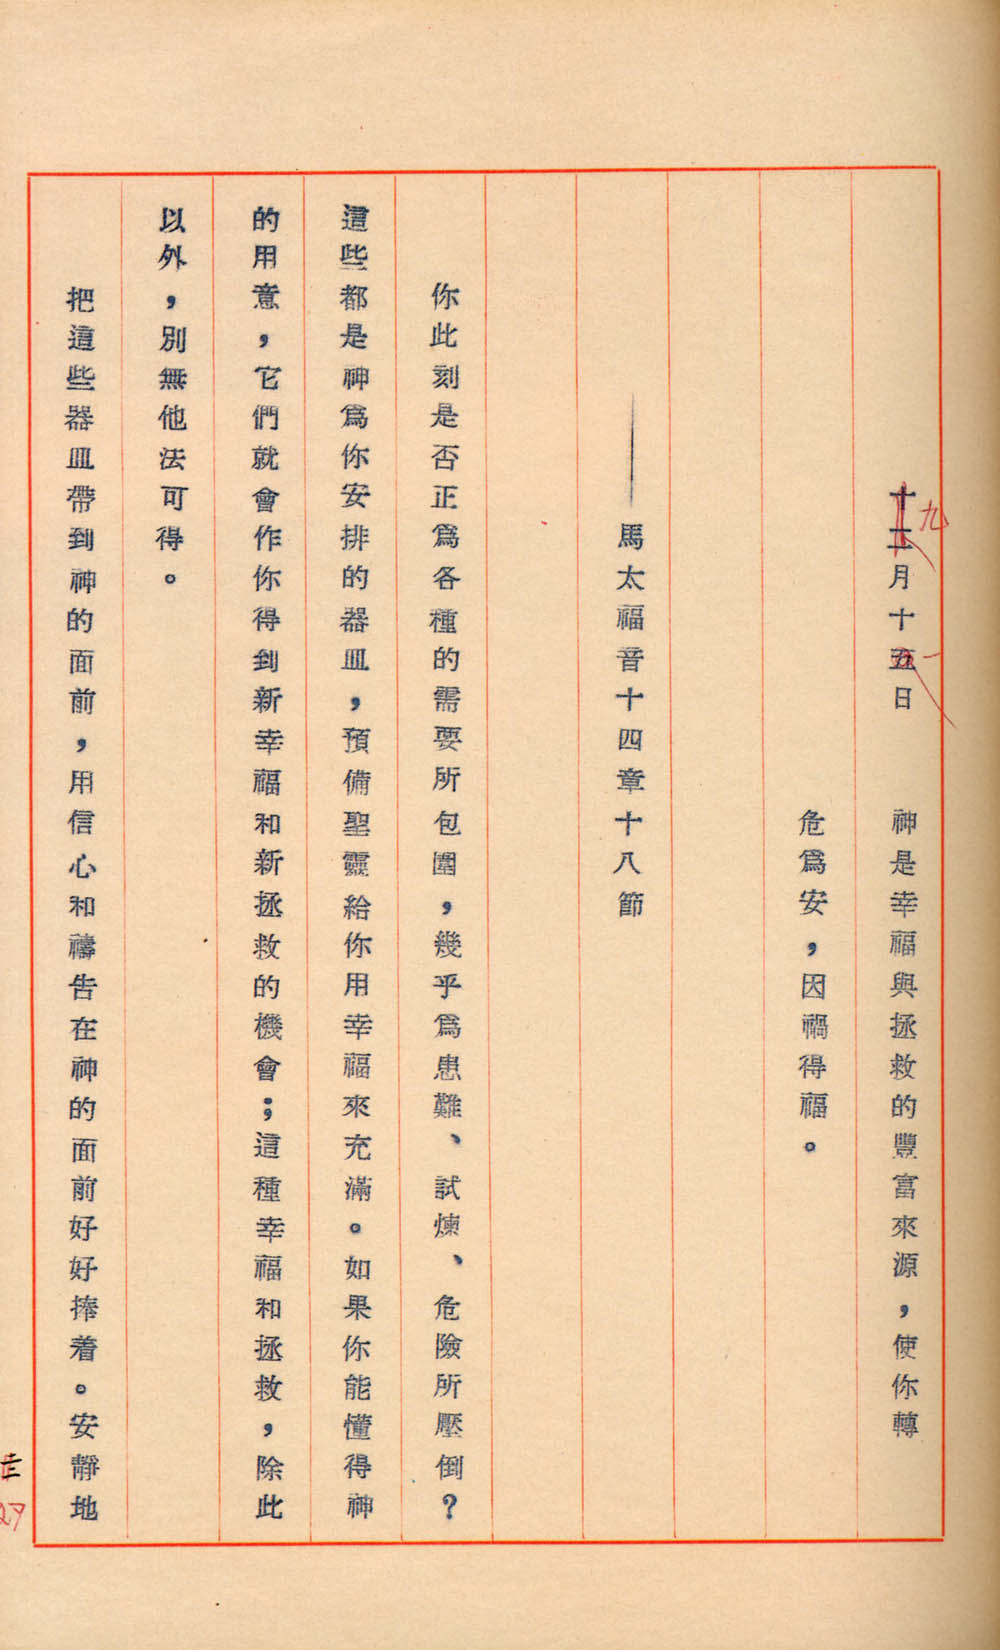 十二月十五日　神是幸福與拯救的豐富來源，使你轉
九
一
危爲安，因禍得福。
——馬太福音十四章十八節
你此刻是否正爲各種的需要所包圍，幾乎爲患難、試煉、危險所壓倒？
這些都是神爲你安排的器皿，預備聖靈給你用幸福來充滿。如果你能懂得神
的用意，它們就會作你得到新幸福和新拯救的機會；這種幸福和拯救，除此
以外，別無他法可得。
把這些器皿帶到神的面前，用信心和禱告在神的面前好好捧着。安靜地
27